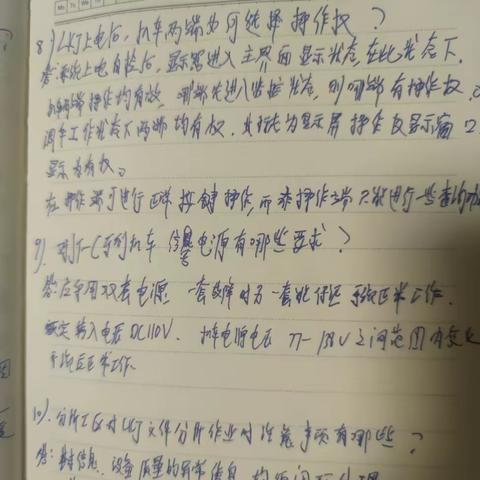 8) LKJ上电后，机车两端为何选择操作权？
答：系统上电自检后，显示器进入主界面显示状态，在此状态下，
机车两端操作均有效，哪端先进入监控状态，则哪端有操作权，
调车工作状态下两端均有权，其标志为显示屏操作权显示窗口
显示为有权。
在操作端可进行正常按键操作，而非操作端只能进行一些查询
9). 对 列机车 信号电源有哪些要求？
答：应采用双套电源 一套故障时另一套能保证 系统正常工作.
额定输入电压DC110V. 机车电源电压 77-138V之间范围内变化
系统应正常工作.
10). 分析 对LKJ文件分析作业时注意事项有哪些？
答： 信息、设备质量的异常信息